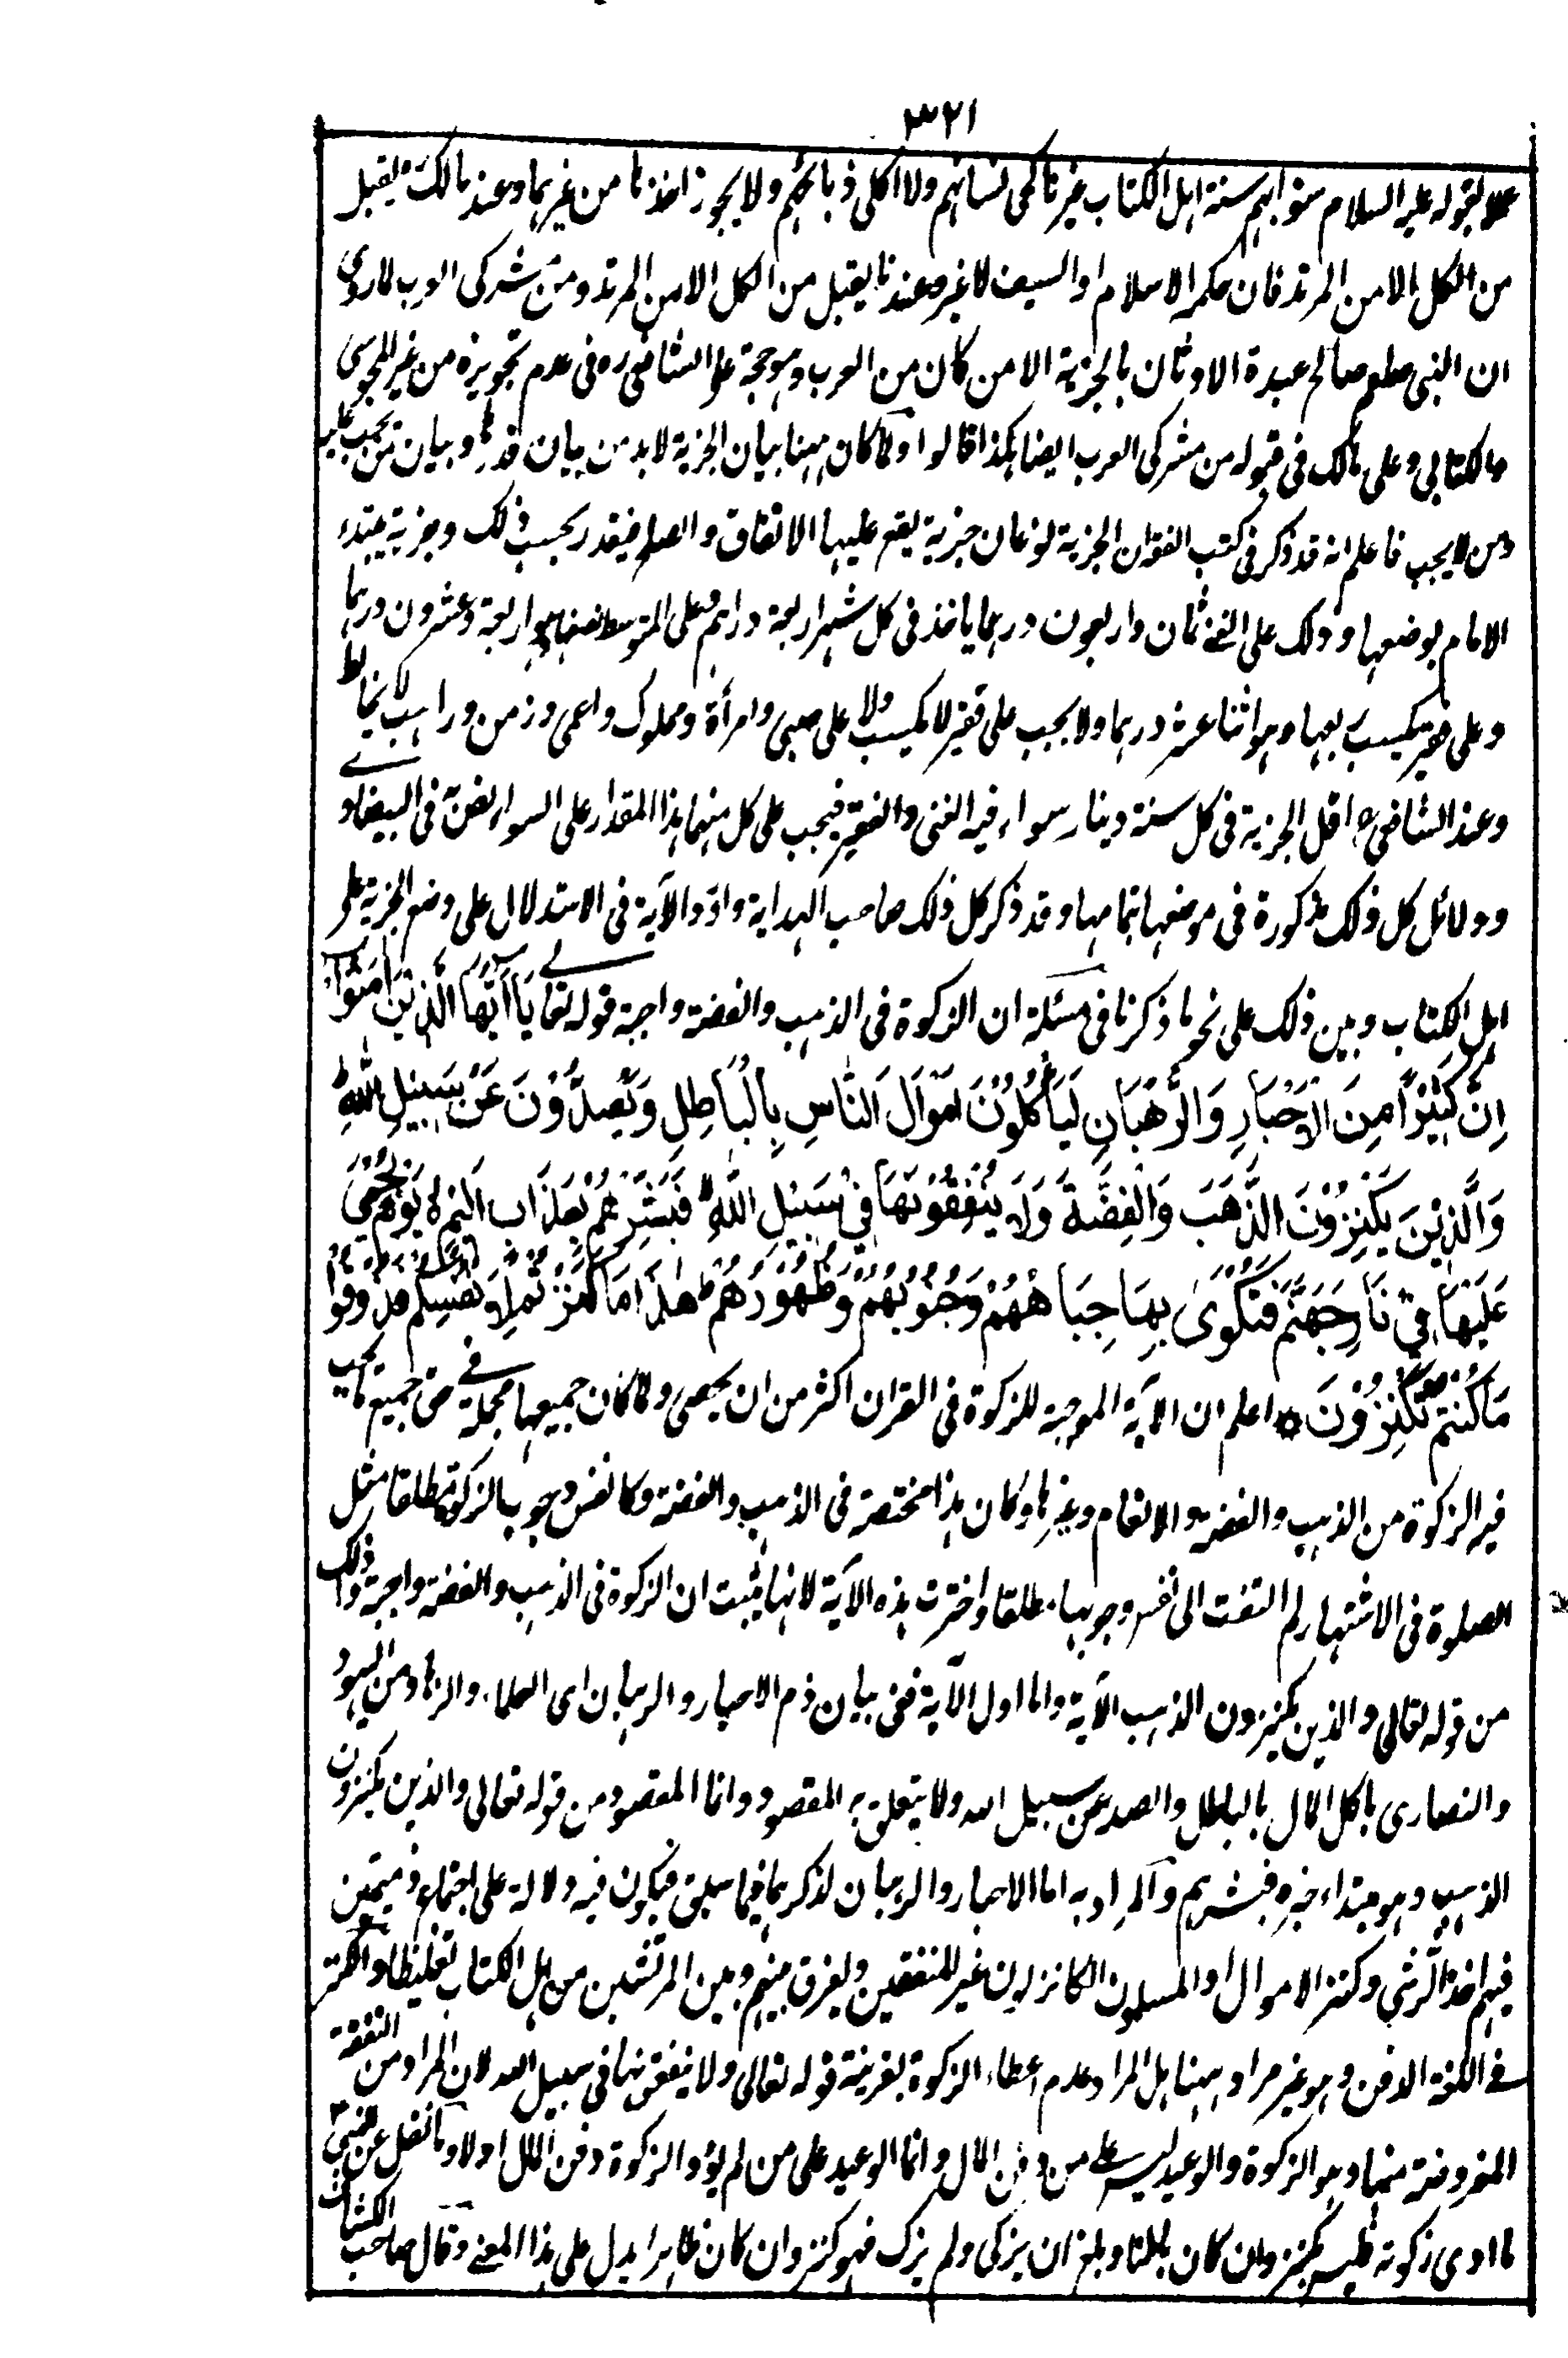 ٣٢١
عملا لقوله عليه السلام سنوا بهم سنة اهل الكتاب غير ناكحى نسائهم ولا اكلى ذبائحهم ولا يجوز اخذها من غيرهما وعند مالك رح يقبل
من الكل الا من المرتد فان حكمه الاسلام او السيف لا غير وعندنا يقبل من الكل الا من المرتد ومن مشركى العرب لما روى
ان النبى صلعم صالح عبدة الاوثان بالجزية الا من كان من العرب وهو حجة على الشافعى ره فى عدم تجويزه من غير المجوسى
والكتابى وعلى مالك فى قبوله من مشركى العرب ايضا هكذا قالوا ولما كان ههنا بيان الجزية لا بد من بيان قدرها وبيان من يجب عليه
ومن لا يجب فاعلم انه قد ذكر فى كتب الفقه ان الجزية نوعان جزية يقع عليها الاتفاق والصلح فيقدر بحسب ذلك وجزية يبتدء
الامام بوضعها وذلك على الغنى ثمان واربعون درهما ياخذ فى كل شهر اربعة دراهم وعلى المتوسط نصفها وهو اربعة وعشرون درهما
وعلى فقير يكسب ربعها وهو اثنا عشر درهما ولا يجب على فقير لا يكسب ولا على صبى وامرأة ومملوك واعمى وزمن وراهب لا يخالط
وعند الشافعى رح اقل الجزية فى كل سنة دينار سواء فيه الغنى والفقير فيجب على كل منهما هذا المقدار على السواء نص به فى البيضاوى
ودلائل كل ذلك مذكورة فى موضعها بتمامها وقد ذكر كل ذلك صاحب الهداية واورد الآية فى الاستدلال على وضع الجزية على
اهل الكتاب وبين ذلك على نحو ما ذكرنا فى مسئلة ان الزكوة فى الذهب والفضة واجبة قوله تعالى يَا أَيُّهَا الَّذِيْنَ اٰمَنُوْا
اِنَّ كَثِيْرًا مِنَ الْاَحْبَارِ وَالرُّهْبَانِ لَيَاْكُلُوْنَ اَمْوَالَ النَّاسِ بِالْبَاطِلِ وَيَصُدُّوْنَ عَنْ سَبِيْلِ اللّٰهِ
وَالَّذِيْنَ يَكْنِزُوْنَ الذَّهَبَ وَالْفِضَّةَ وَلَا يُنْفِقُوْنَهَا فِيْ سَبِيْلِ اللّٰهِ فَبَشِّرْهُمْ بِعَذَابٍ اَلِيْمٍ يَوْمَ يُحْمٰى
عَلَيْهَا فِيْ نَارِ جَهَنَّمَ فَتُكْوٰى بِهَا جِبَاهُهُمْ وَجُنُوْبُهُمْ وَظُهُوْرُهُمْ هٰذَا مَا كَنَزْتُمْ لِاَنْفُسِكُمْ فَذُوْقُوْا
مَا كُنْتُمْ تَكْنِزُوْنَ اعلم ان الآية الموجبة للزكوة فى القران اكثر من ان يحصى ولما كان جميعها مجملة فى حق جميع ما يجب
فيه الزكوة من الذهب والفضة والانعام وغيرها وكان هذا مختصة فى الذهب والفضة وكان نفس وجوب الزكوة مطلقا مثل
الصلوة فى الاشتهار لم التفت الى نفس وجوبها مطلقا واخترت هذه الآية لانها يثبت ان الزكوة فى الذهب والفضة واجبة وذلك
من قوله تعالى والذين يكنزون الذهب الآية واما اول الآية ففى بيان ذم الاحبار والرهبان اى العلماء والزهاد من اليهود
والنصارى باكل المال بالباطل والصد عن سبيل الله ولا يتعلق به المقصود وانما المقصود من قوله تعالى والذين يكنزون
الذهب وهو مبتداء خبره فبشرهم والمراد به اما الاحبار والرهبان لذكرهما فيما سبق فيكون فيه دلالة على اجتماع ذميمتين
فيهم اخذ الرشى وكنز الاموال او المسلمون الكانزون غير المنفقين ويفرق بينهم وبين المرتشين من اهل الكتاب تغليظا والكنز
فى اللغة الدفن وهو غير مراد ههنا بل المراد عدم اعطاء الزكوة بقرينة قوله تعالى ولا ينفقونها فى سبيل الله لان المراد من النفقة
المفروضة منها وهو الزكوة والوعيد ليس على من دفن المال وانما الوعيد على من لم يؤد الزكوة دفن المال اولا وما نقل عن النبى
ما ادى زكوته فليس بكنز وان كان باطنا وبلغ ان يزكى ولم يزك فهو كنز وان كان ظاهرا يدل على هذا المعنى وقال صاحب الكشاف